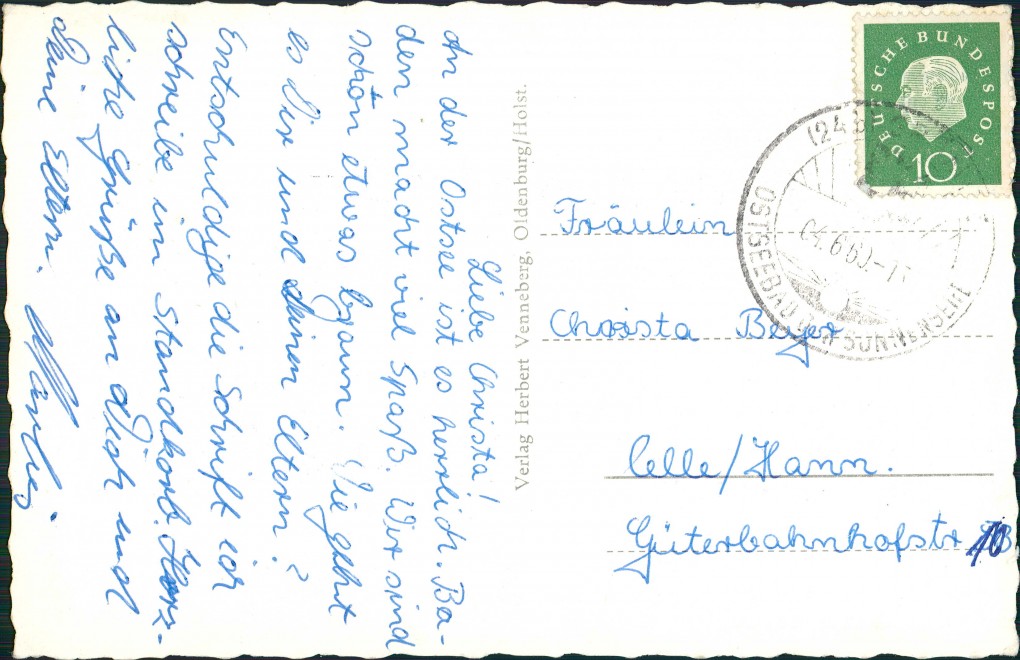 Liebe Christa!
An der Ostsee ist es herrlich. Ba-
den macht viel Spaß. Wir sind
schön etwas braun. Wie geht
es Dir und deinen Eltern?
Entschuldige die Schrift ich
schreibe im Standkorb. Herz-
liche Grüße an Dich und
deine Eltern.
Verlag Herbert Venneberg, Oldenburg/Holst.
DEUTSCHE BUNDESPOST
10
(24
OSTSEEBAD
6.60
Fräulein
Christa Beyer
Celle/Hann.
Güterbahnhofstr